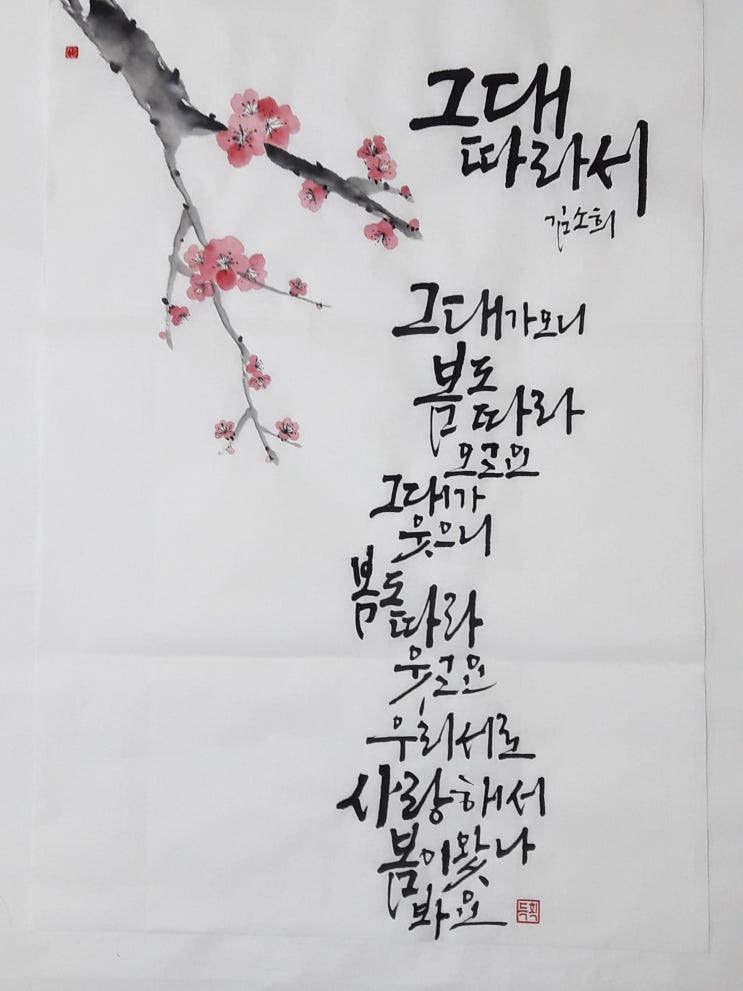 그대
따라서
김소희
그대가 오니
봄도
따라
오고요
그대가
웃으니
봄도
따라
웃고요
우리 서로
사랑해서
봄이 왔나
봐요